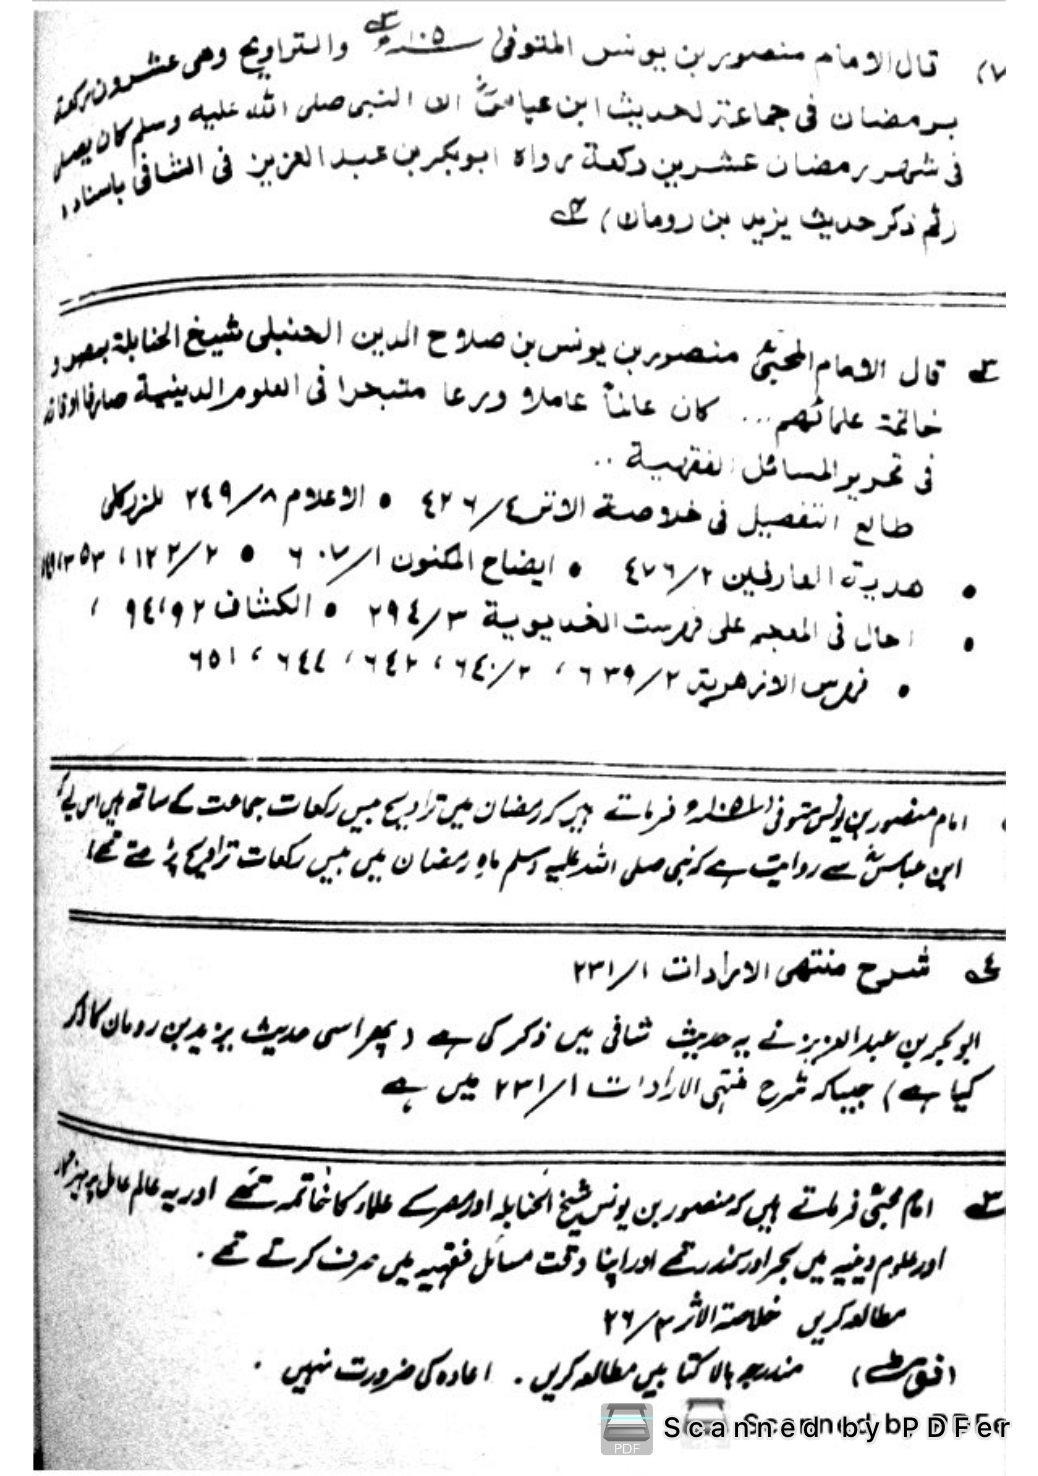 (٧) قال الامام منصور بن يونس المتوفى ١٠٥١ھ والتراويح وهى عشرون ركعة
برمضان فى جماعة لحديث ابن عباس ان النبى صلى الله عليه وسلم كان يصلى
فى شهر رمضان عشرين ركعة رواه ابوبكر بن عبد العزيز فى الشافى باسناده
(ثم ذكر حديث يزيد بن رومان)
٣ قال الامام المحبى منصور بن يونس بن صلاح الدين الحنبلى شيخ الحنابلة بمصر و
خاتمة علمائهم ... كان عالماً عاملا ورعا متبحرا فى العلوم الدينية صارفا اوقاته
فى تحرير المسائل الفقهية ..
طالع التفصيل فى خلاصة الاثر ٤/٤٢٦ • الاعلام ٨/٢٤٩ للزركلى
• هدية العارفين ٢/٤٧٦ • ايضاح المكنون ١/٦٠٧ • ٢/١٢٢، ٣٥٣،
• احال فى المعجم على فهرست الخديوية ٣/٢٩٤ • الكشاف ٩٢، ٩٤،
• فهرس الازهرية ٢/٦٣٩، ٢/٦٤٠، ٦٤٢، ٦٤٤، ٦٥١
امام منصور بن یونس متوفی ١٠٥١ھ فرماتے ہیں کہ رمضان میں تراویح بیس رکعات جماعت کے ساتھ ہیں اس لیے کہ
ابن عباسؓ سے روایت ہے کہ نبی صلی اللہ علیہ وسلم ماہِ رمضان میں بیس رکعات تراویح پڑھتے تھے۔
٤ شرح منتهى الارادات ١/٢٣١
ابوبکر بن عبدالعزیز نے یہ حدیث شافی میں ذکر کی ہے (پھر اسی حدیث یزید بن رومان کا ذکر
کیا ہے) جیسا کہ شرح منتہی الارادات ١/٢٣١ میں ہے
٣ امام محبیؒ فرماتے ہیں کہ منصور بن یونس شیخ الحنابلہ اور مصر کے علماء کا خاتمہ تھے اور یہ عالم عامل پرہیزگار
اور علوم دینیہ میں بحر اور سمندر تھے اور اپنا وقت مسائل فقہیہ میں صرف کرتے تھے۔
مطالعہ کریں خلاصۃ الاثر ٢٦/٣
(نوٹ) مندرجہ بالا کتابیں مطالعہ کریں۔ اعادہ کی ضرورت نہیں۔
PDF Scanned by PDFer